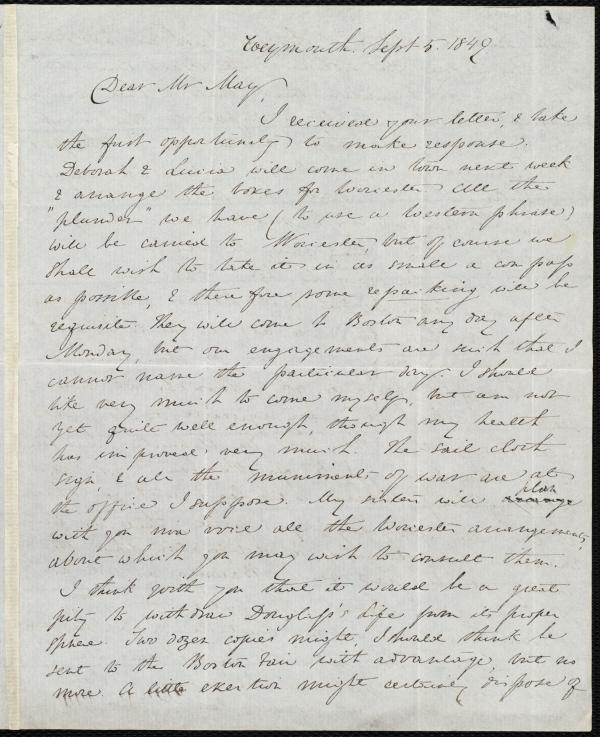 Weymouth. Sept 5. 1849
Dear Mr May,
I received your letter, & take
the first opportunity to make response.
Deborah & Lucia will come in town next week
& arrange the boxes for Worcester. All the
"plunder" we have (to use a Western phrase)
will be carried to Worcester, but of course we
shall wish to take it in as small a compass
as possible, & there fore some repacking will be
requisite. They will come to Boston any day after
Monday, but our engagements are such that I
cannot name the particular day. I should
like very much to come myself, but am not
yet quite well enough, though my health
has improved very much. The sail cloth
sign, & all the muniments of war are at
the office I suppose. My sisters will plan
with you viva voce all the Worcester arrangements,
about which you may wish to consult them.
I think with you that it would be a great
pity to withdraw Douglass's Life from its proper
sphere. Two dozen copies might, I should think be
sent to the Boston Fair with advantage, but no
more. A little exertion might certainly dispose of